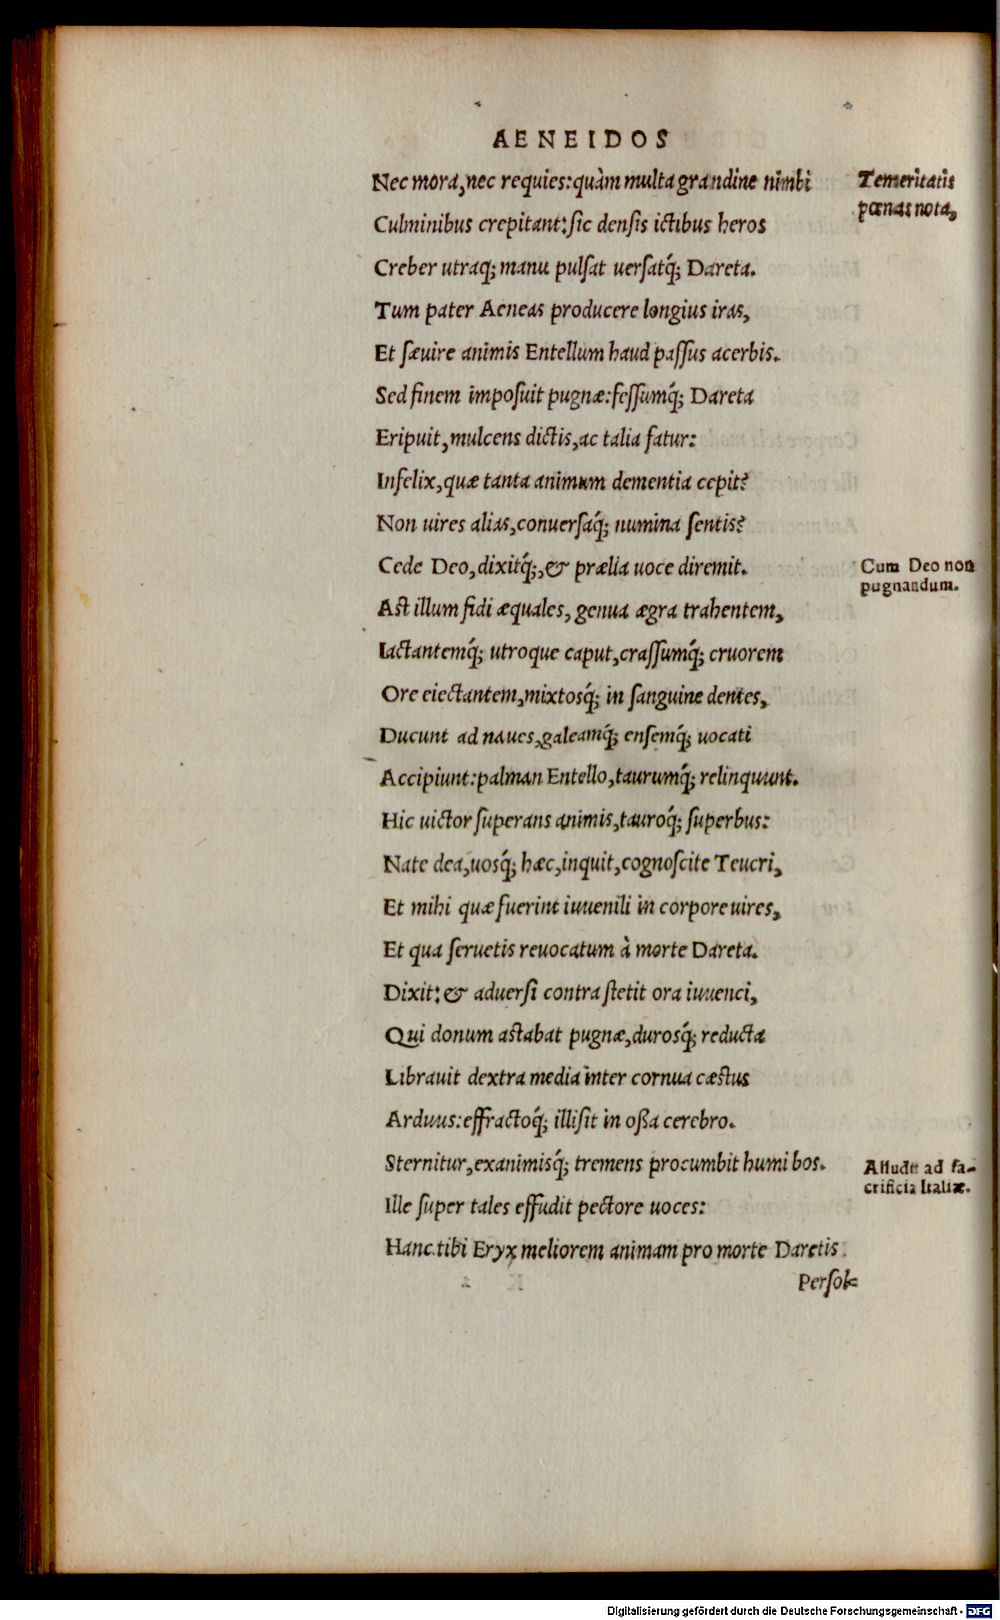 AENEIDOS
Nec mora, nec requies: quàm multa grandine nimbi
Temeritatis
pœnas nota,
Culminibus crepitant: ſic denſis ictibus heros
Creber utraq; manu pulſat uerſatq́; Dareta.
Tum pater Aeneas producere longius iras,
Et ſæuire animis Entellum haud paſſus acerbis.
Sed finem impoſuit pugnæ: feſſumq́; Dareta
Eripuit, mulcens dictis, ac talia fatur:
Infelix, quæ tanta animum dementia cepit?
Non uires alias, conuerſaq́; numina ſentis?
Cede Deo, dixitq́;, & prælia uoce diremit.
Cum Deo non
pugnandum.
Ast illum fidi æquales, genua ægra trahentem,
Iactantemq́; utroque caput, craſſumq́; cruorem
Ore eiectantem, mixtosq́; in ſanguine dentes,
Ducunt ad naues, galeamq́; enſemq́; uocati
Accipiunt: palman Entello, taurumq́; relinquunt.
Hic uictor ſuperans animis, tauroq́; ſuperbus:
Nate dea, uosq́; hæc, inquit, cognoſcite Teucri,
Et mihi quæ fuerint iuuenili in corpore uires,
Et qua ſeruetis reuocatum à morte Dareta.
Dixit: & aduerſi contra ſtetit ora iuuenci,
Qui donum astabat pugnæ, durosq́; reducta
Librauit dextra media inter cornua cæstus
Arduus: effractoq́; illiſit in oßa cerebro.
Sternitur, exanimisq́; tremens procumbit humi bos.
Alludit ad ſa-
crificia Italiæ.
Ille ſuper tales effudit pectore uoces:
Hanc tibi Eryx meliorem animam pro morte Daretis
Perſol-
Digitalisierung gefördert durch die Deutsche Forschungsgemeinschaft - DFG